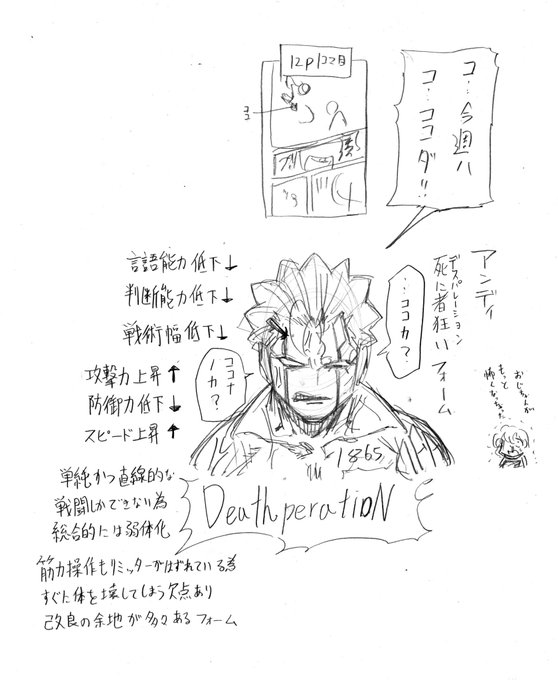 コ…今週ハ
コ…ココダ!!
12P1コマ目
ココ
アンディ
デスパレーション
死に者狂いフォーム
言語能力低下↓
判断能力低下↓
戦術幅低下↓
攻撃力上昇↑
防御力低下↓
スピード上昇↑
…ココカ?…
ココナノカ?
おじちゃんが
もっと
怖くなっちゃった
1865
DeathperatioN
単純かつ直線的な
戦闘しかできない為
総合的には弱体化
筋力操作もリミッターがはずれている為
すぐに体を壊してしまう欠点あり
改良の余地が多々あるフォーム